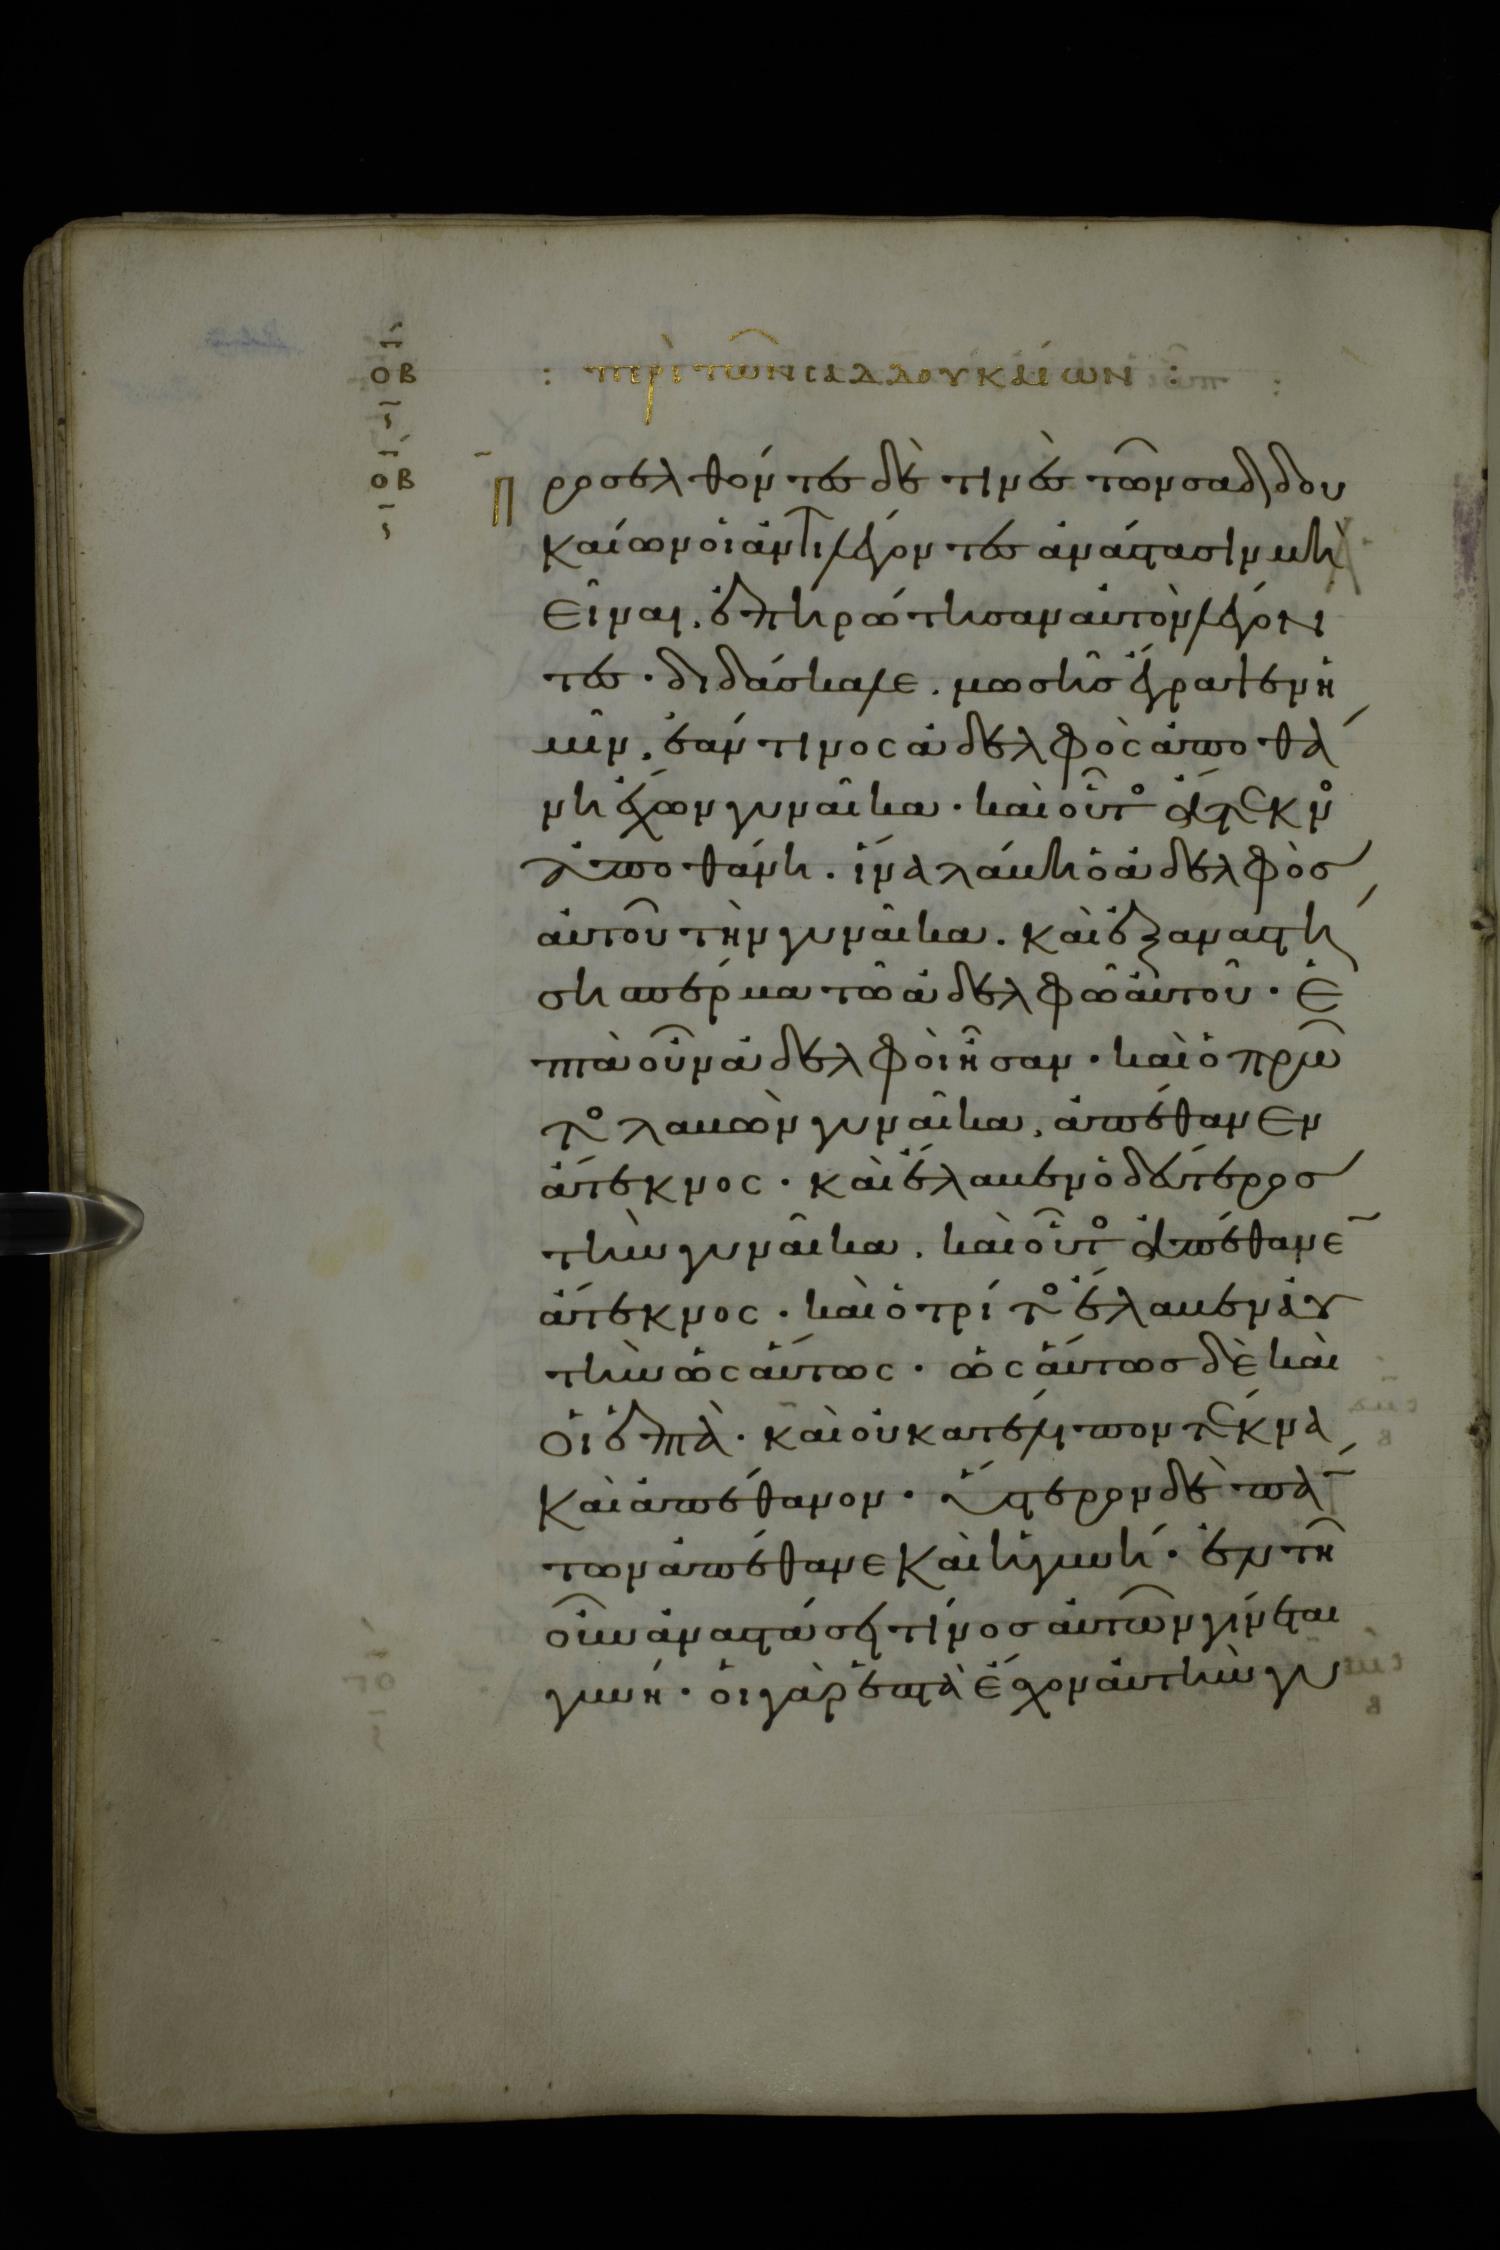 ΟΒ
: περὶ τῶν σαδδουκαίων :
ΟΒ
Προσελθόντες δέ τινες τῶν σαδδου
καίων οἱ ἀντιλέγοντες ἀνάστασιν μὴ
εἶναι, ἐπηρώτησαν αὐτὸν λέγον
τες· διδάσκαλε. μωσῆς ἔγραψεν ἡ
μῖν, ἐάν τινος ἀδελφὸς ἀποθά
νη ἔχων γυναῖκα· καὶ οὗτος ἄτεκνος
ἀποθάνη. ἵνα λάβη ὁ ἀδελφὸς
αὐτοῦ τὴν γυναῖκα. καὶ ἐξαναστή
ση σπέρμα τῶ ἀδελφῶ αὐτοῦ· ἑ
πτὰ οὖν ἀδελφοὶ ἦσαν· καὶ ὁ πρῶ
τος λαβὼν γυναῖκα, ἀπέθανεν
ἄτεκνος· καὶ ἔλαβεν ὁ δεύτερος
τὴν γυναῖκα, καὶ οὗτος ἀπέθανε
ἄτεκνος· καὶ ὁ τρίτος ἔλαβεν αὐ
τὴν ὡς αύτως· ὡς αύτως δὲ καὶ
οἱ ἑπτὰ· καὶ οὐ κατέλιπον τέκνα
καὶ ἀπέθανον· ὕστερον δὲ πάν
των ἀπέθανε καὶ ἡ γυνή· ἐν τῆ
οὖν ἀναστάσει τίνος αὐτῶν γίνεται
γυνή· οἱ γὰρ ἑπτὰ ἔσχον αὐτὴν γυ